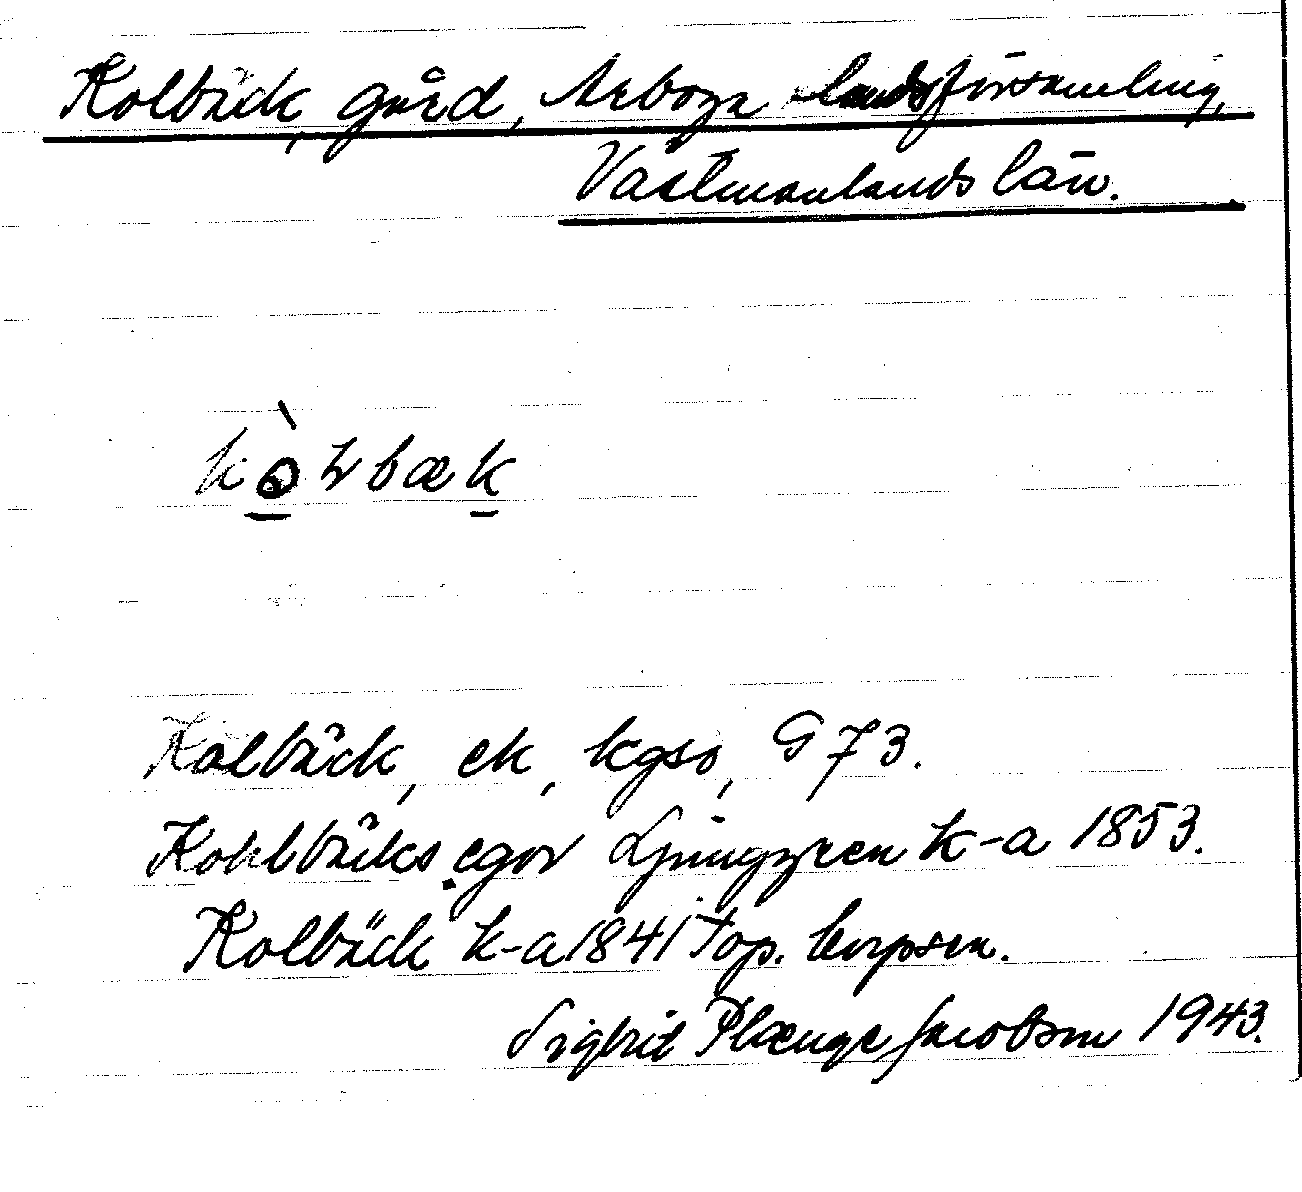 Kolbäck, gård, Arboga landsförsamling,
Västmanlands län.
kò̱lbæḵ
Kolbäck, ek, kgso, G 73.
Kohlbäks egor Ljunggren k-a 1853.
Kolbäck k-a 1841 Top. corpsen.
Sigbrit Plænge Jacobson 1943.